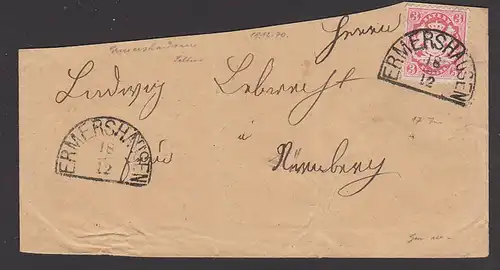 Herrn
3 BAYERN 3
ERMERSHAUSEN
18
12
Ludwig Lebrecht
in
Nürnberg
ERMERSHAUSEN
18
12